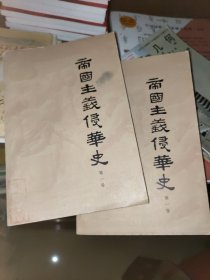 帝國主義侵華史
第一卷
帝國主義侵華史
第一卷
几何